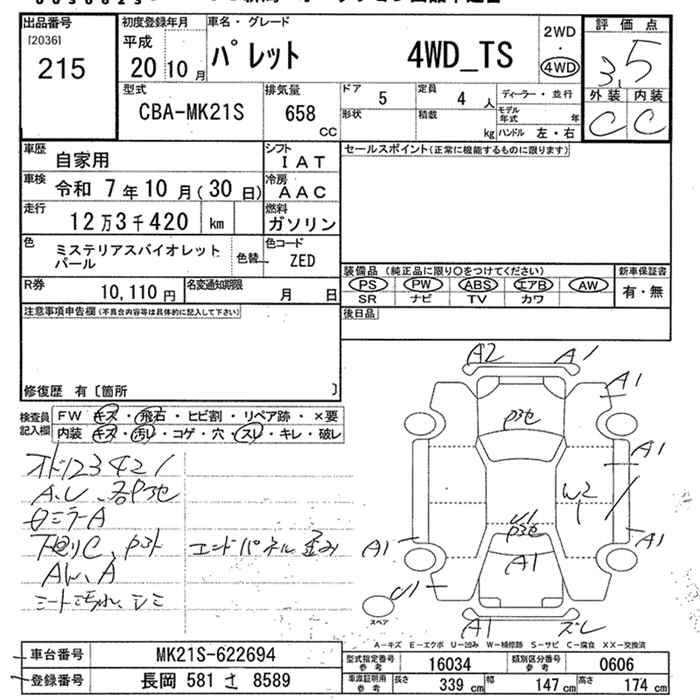 出品番号
[2036]
215
初度登録年月
平成
20 10 月
車名・グレード
パレット 4WD_TS
2WD
・
4WD
評価点
3.5
外装 内装
C C
型式
CBA-MK21S
排気量
658
CC
ドア
5
定員
4 人
形状
積載
kg
ディーラー・並行
モデル年式 年
ハンドル 左・右
車歴
自家用
シフト
IAT
車検
令和 7年10月(30日)
冷房
AAC
走行
12万3千420 km
燃料
ガソリン
色
ミステリアスバイオレットパール
色替
色コード
ZED
R券
10,110 円
名変通知期限
月 日
セールスポイント(正常に機能するものに限ります)
装備品 (純正品に限り○をつけてください)
新車保証書
PS PW ABS エアB AW
SR ナビ TV カワ
有・無
後日品
注意事項申告欄(不具合内容等は具体的に記入して下さい)
修復歴 有〔箇所 〕
検査員記入欄
FW キズ・飛石・ヒビ割・リペア跡・×要
内装 キズ・汚レ・コゲ・穴・スレ・キレ・破レ
オド123421
A.U
ロミラーA
下廻りC
エンドパネル歪み
AW、A
シミ
A2 A1
A1
A1
W2
A1
A1
U1
A1
A1 ズレ
スペア
A-キズ E-エクボ U-凹み W-補修跡 S-サビ C-腐食 XX-交換済
車台番号 MK21S-622694
登録番号 長岡 581 さ 8589
型式指定番号 参考 16034
類別区分番号 参考 0606
車庫証明用 参考 長さ 339 cm 幅 147 cm 高さ 174 cm